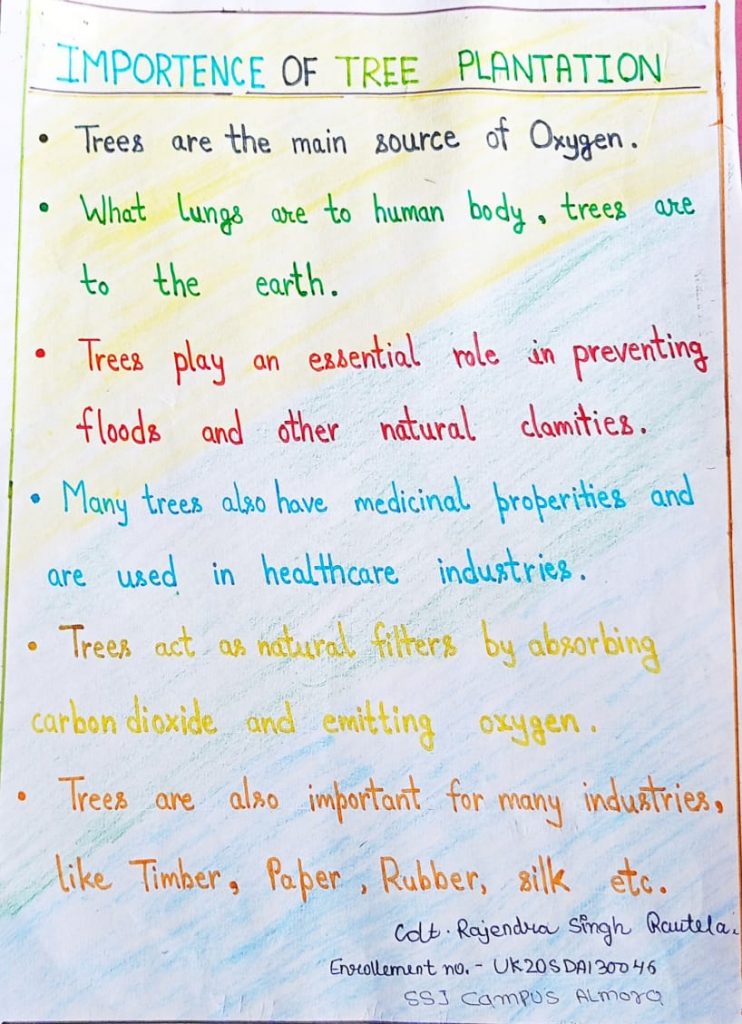 IMPORTENCE OF TREE PLANTATION
• Trees are the main source of Oxygen.
• What lungs are to human body, trees are
to the earth.
• Trees play an essential role in preventing
floods and other natural clamities.
• Many trees also have medicinal properities and
are used in healthcare industries.
• Trees act as natural filters by absorbing
carbon dioxide and emitting oxygen.
• Trees are also important for many industries,
like Timber, Paper, Rubber, silk etc.
Cdt. Rajendra Singh Rautela.
Enrollement no. - UK20SDA130046
SSJ CAMPUS ALMORA